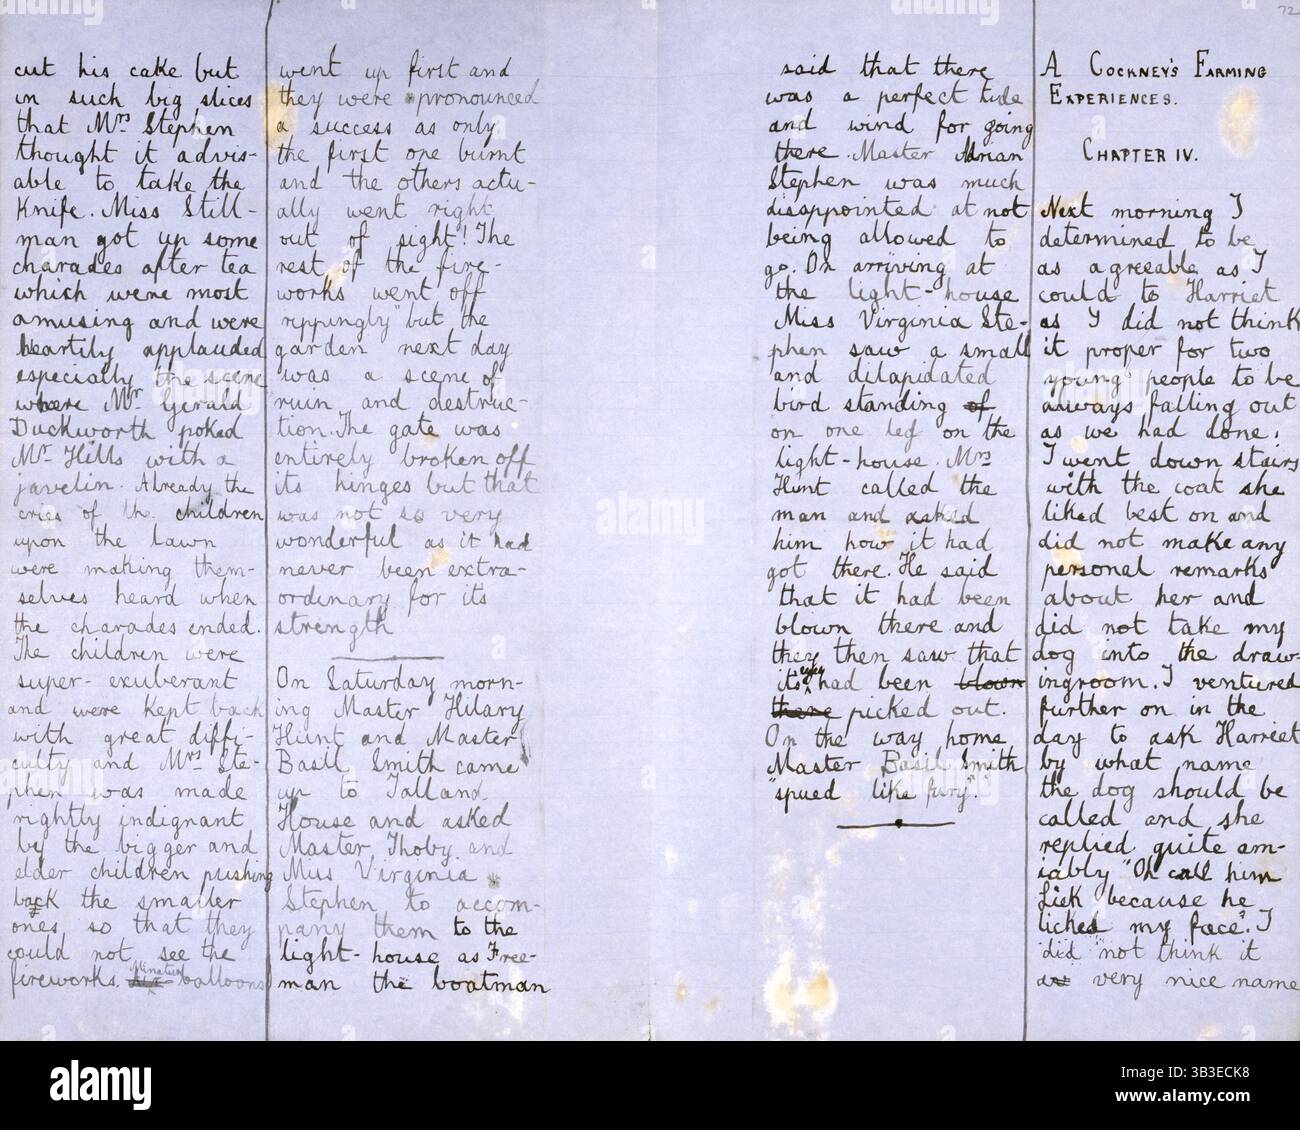 72
cut his cake but
in such big slices
that Mrs Stephen
thought it advis-
able to take the
knife. Miss Still-
man got up some
charades after tea
which were most
amusing and were
heartily applauded
especially the scene
where Mr Gerald
Duckworth poked
Mr Hills with a
javelin. Already the
cries of the children
upon the lawn
were making them-
selves heard when
the charades ended.
The children were
super-exuberant
and were kept back
with great diffi-
culty and Mrs Ste-
phen was made
rightly indignant
by the bigger and
elder children pushing
back the smaller
ones so that they
could not see the
fireworks. balloons
went up first and
they were pronounced
a success as only
the first one burnt
and the others actu-
ally went right
out of sight! The
rest of the fire-
works went off
"rippingly" but the
garden next day
was a scene of
ruin and destruc-
tion. The gate was
entirely broken off
its hinges but that
was not so very
wonderful as it had
never been extra-
ordinary for its
strength
On Saturday morn-
ing Master Hilary
Hunt and Master
Basil Smith came
up to Talland
House and asked
Master Thoby and
Miss Virginia
Stephen to accom-
pany them to the
light-house as Free-
man the boatman
said that there
was a perfect tide
and wind for going
there. Master Adrian
Stephen was much
disappointed at not
being allowed to
go. On arriving at
the light-house
Miss Virginia Ste-
phen saw a small
and dilapidated
bird standing of
on one leg on the
light-house. Mrs
Hunt called the
man and asked
him how it had
got there. He said
that it had been
blown there and
they then saw that
its eyes had been blown
there picked out.
On the way home
Master Basil Smith
"spued like fury".
A COCKNEY'S FARMING
EXPERIENCES.
CHAPTER IV.
Next morning I
determined to be
as agreeable as I
could to Harriet
as I did not think
it proper for two
young people to be
always falling out
as we had done.
I went down stairs
with the coat she
liked best on and
did not make any
personal remarks
about her and
did not take my
dog into the draw-
ingroom. I ventured
further on in the
day to ask Harriet
by what name
the dog should be
called and she
replied quite am-
iably "Oh call him
Lick because he
licked my face". I
did not think it
a very nice name
alamy
Image ID: 3B3ECK8
www.alamy.com